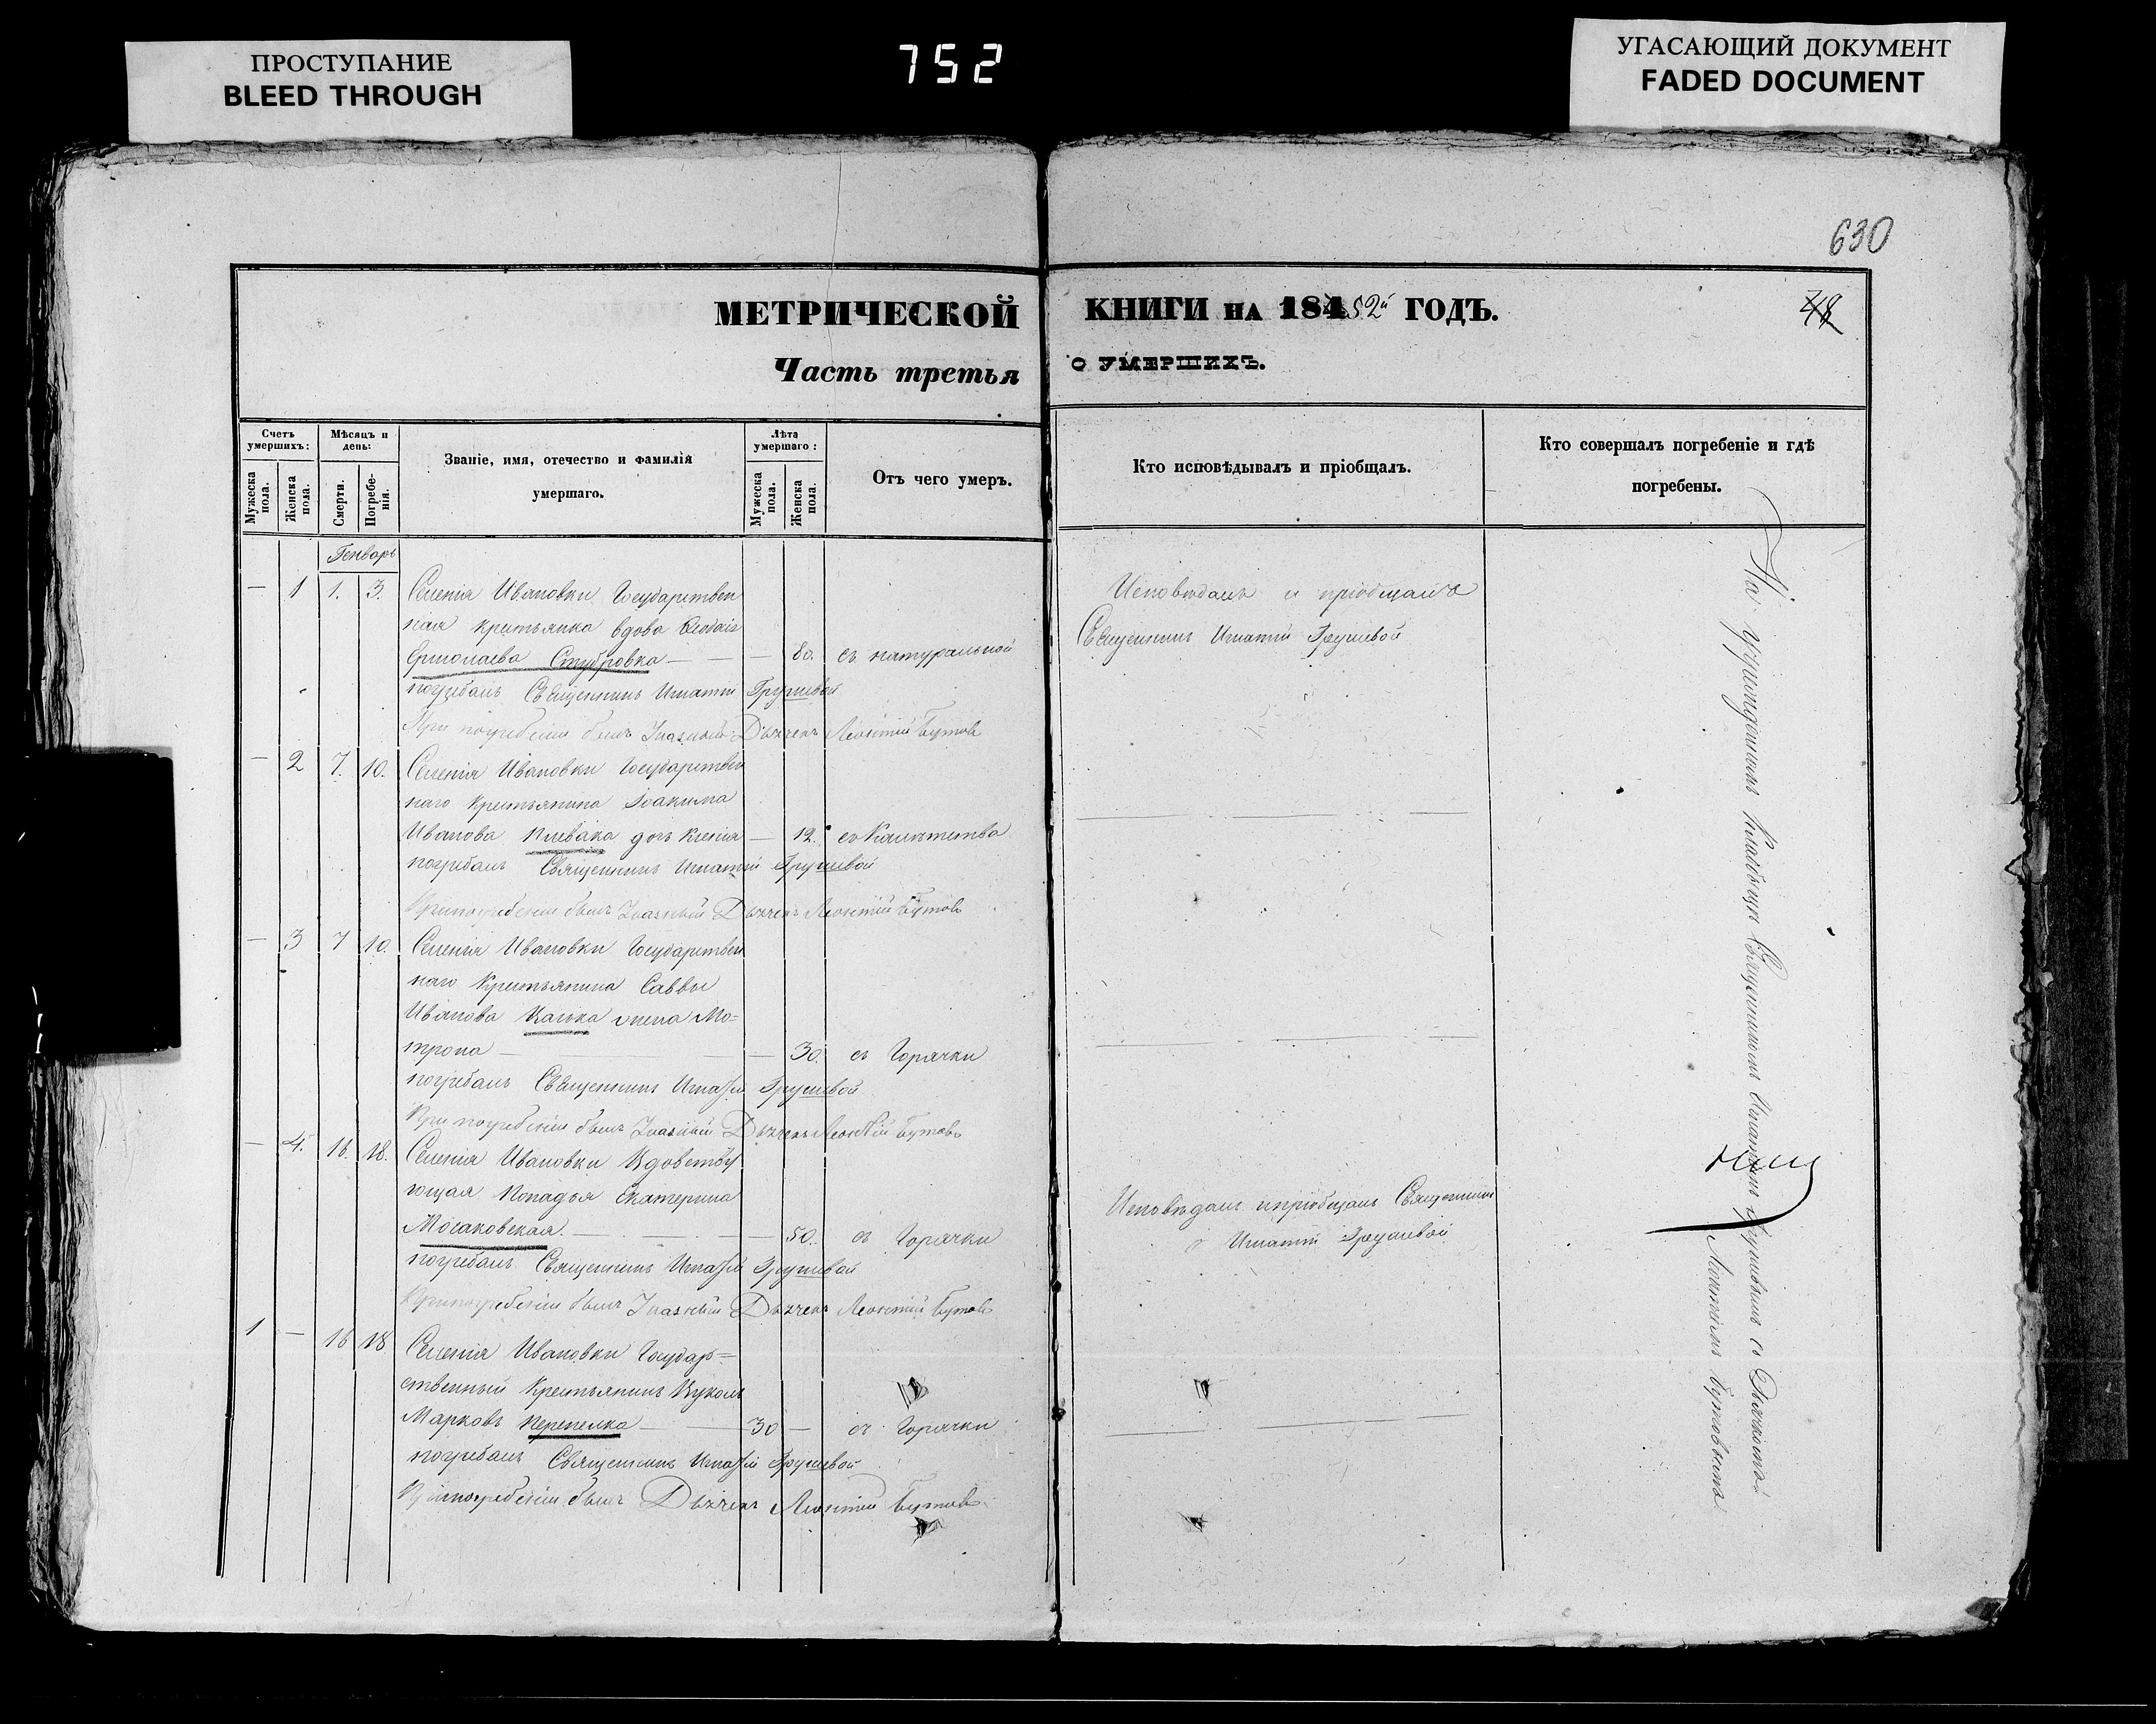 ПРОСТУПАНИЕ
BLEED THROUGH
752
УГАСАЮЩИЙ ДОКУМЕНТ
FADED DOCUMENT
630
МЕТРИЧЕСКОЙ КНИГИ НА 18452й ГОДЪ.
48
Часть третья О УМЕРШИХЪ.
Счетъ умершихъ:
Мужеска пола.
Женска пола.
Мѣсяцъ и день:
Смерти.
Погребенія.
Званіе, имя, отечество и фамилія
умершаго.
Лѣта умершаго:
Мужеска пола.
Женска пола.
Отъ чего умеръ.
Кто исповѣдывалъ и пріобщалъ.
Кто совершалъ погребеніе и гдѣ
погребены.
Генварь
— 1 1. 3. Селенія Ивановки Государствен
ная крестьянка вдова
Ермолаева — — 80. съ натуральной
погребалъ Священникъ Игнатій Грушевой
При погребеніи былъ Дьячекъ Леонтій Бутовъ
Исповѣдалъ и пріобщалъ
Священникъ Игнатій Грушевой
— 2 7. 10. Селенія Ивановки Государствен
наго Крестьянина Іоакима
Иванова Плевака дочь Ксенія — 12.
погребалъ Священникъ Игнатій Грушевой
При погребеніи былъ Дьячекъ Леонтій Бутовъ
— 3 7 10. Селенія Ивановки Государствен
наго Крестьянина Саввы
Иванова жена Мо=
трона — — 30. съ Горячки
погребалъ Священникъ Игнатій Грушевой
При погребеніи былъ Дьячекъ Леонтій Бутовъ
— 4. 16. 18. Селенія Ивановки Вдовству
ющая Попадья Екатерина
Мосаковская. — — 50. съ Горячки
погребалъ Священникъ Игнатій Грушевой
При погребеніи былъ Дьячекъ Леонтій Бутовъ
Исповѣдалъ и пріобщалъ Священникъ
Игнатій Грушевой
1 — 16 18 Селенія Ивановки Государ=
ственный Крестьянинъ Вуколъ
Марковъ Перепелка — 30 — съ Горячки
погребалъ Священникъ Игнатій Грушевой
При погребеніи былъ Дьячекъ Леонтій Бутовъ
На учрежденномъ кладбищѣ Священникомъ Игнатіемъ Грушевымъ съ Дьячкомъ
Леонтіемъ Бутовымъ